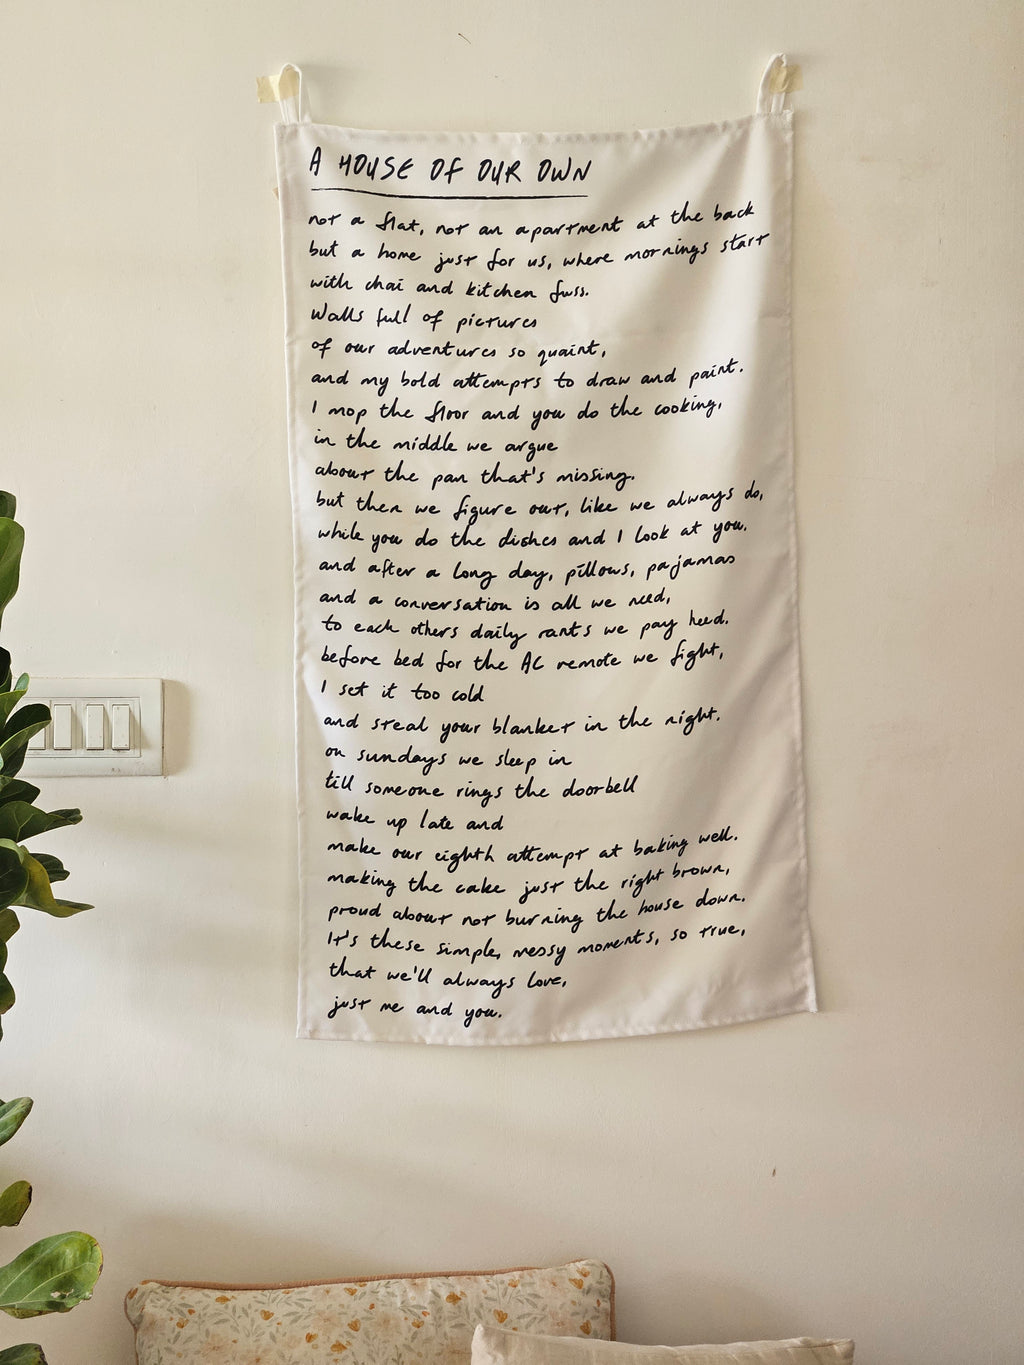 A HOUSE OF OUR OWN
not a flat, not an apartment at the back
but a home just for us, where mornings start
with chai and kitchen fuss.
Walls full of pictures
of our adventures so quaint,
and my bold attempts to draw and paint.
I mop the floor and you do the cooking,
in the middle we argue
about the pan that's missing.
but then we figure out, like we always do,
while you do the dishes and I look at you.
and after a long day, pillows, pajamas
and a conversation is all we need,
to each others daily rants we pay heed.
before bed for the AC remote we fight,
I set it too cold
and steal your blanket in the night.
on sundays we sleep in
till someone rings the doorbell
wake up late and
make our eighth attempt at baking well.
making the cake just the right brown,
proud about not burning the house down.
It's these simple, messy moments, so true,
that we'll always love,
just me and you.